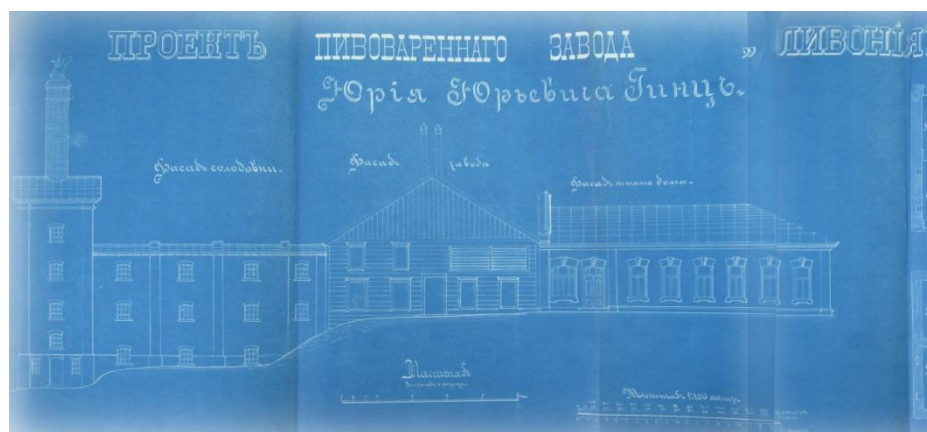 ПРОЕКТЪ ПИВОВАРЕННАГО ЗАВОДА „ ЛИВОНІЯ
Юрія Юрьевича Гинцъ.
Фасадъ солодовни.
Фасадъ завода
Фасадъ жилаго дома.
Масштабъ
Масштабъ 1:100 метр.